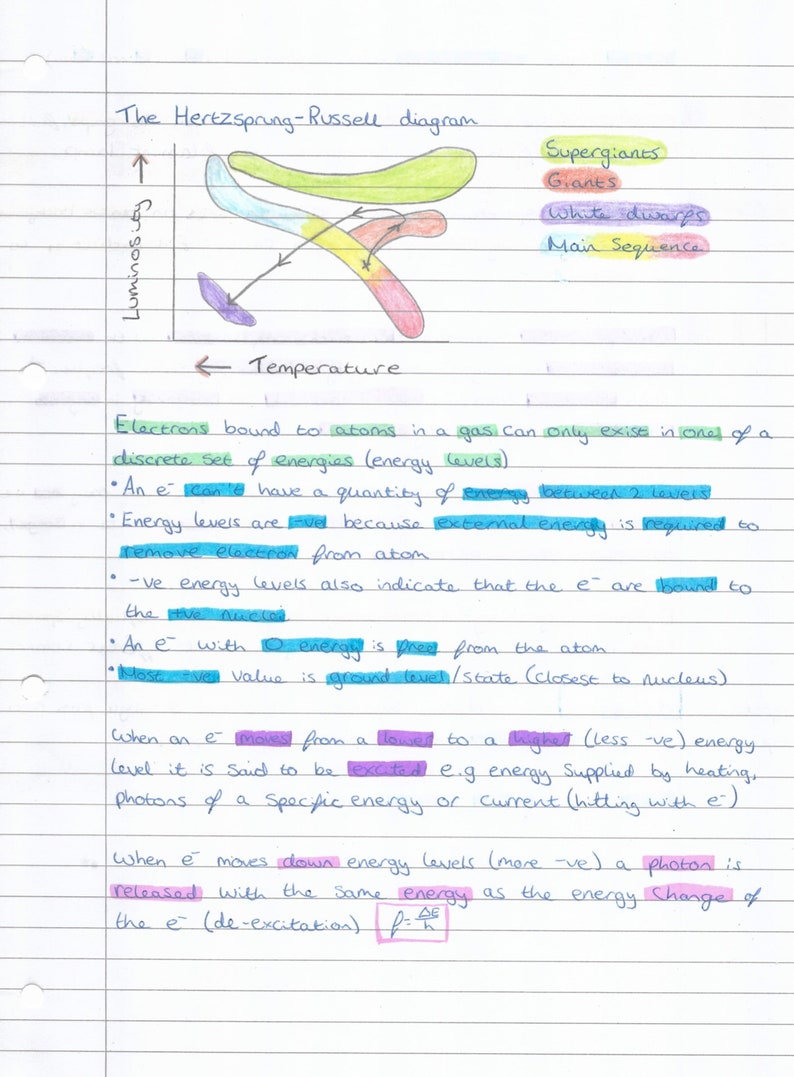 The Hertzsprung-Russell diagram
Luminosity →
← Temperature
Supergiants
Giants
White dwarfs
Main Sequence
Electrons bound to atoms in a gas can only exist in one of a
discrete set of energies (energy levels)
• An e⁻ can't have a quantity of energy between 2 levels
• Energy levels are -ve because external energy is required to
remove electron from atom
• -ve energy levels also indicate that the e⁻ are bound to
the +ve nuclei
• An e⁻ with 0 energy is free from the atom
• Most -ve value is ground level/state (closest to nucleus)
When an e⁻ moves from a lower to a higher (less -ve) energy
level it is said to be excited e.g energy supplied by heating,
photons of a specific energy or current (hitting with e⁻)
When e⁻ moves down energy levels (more -ve) a photon is
released with the same energy as the energy change of
the e⁻ (de-excitation) f = ΔE/h